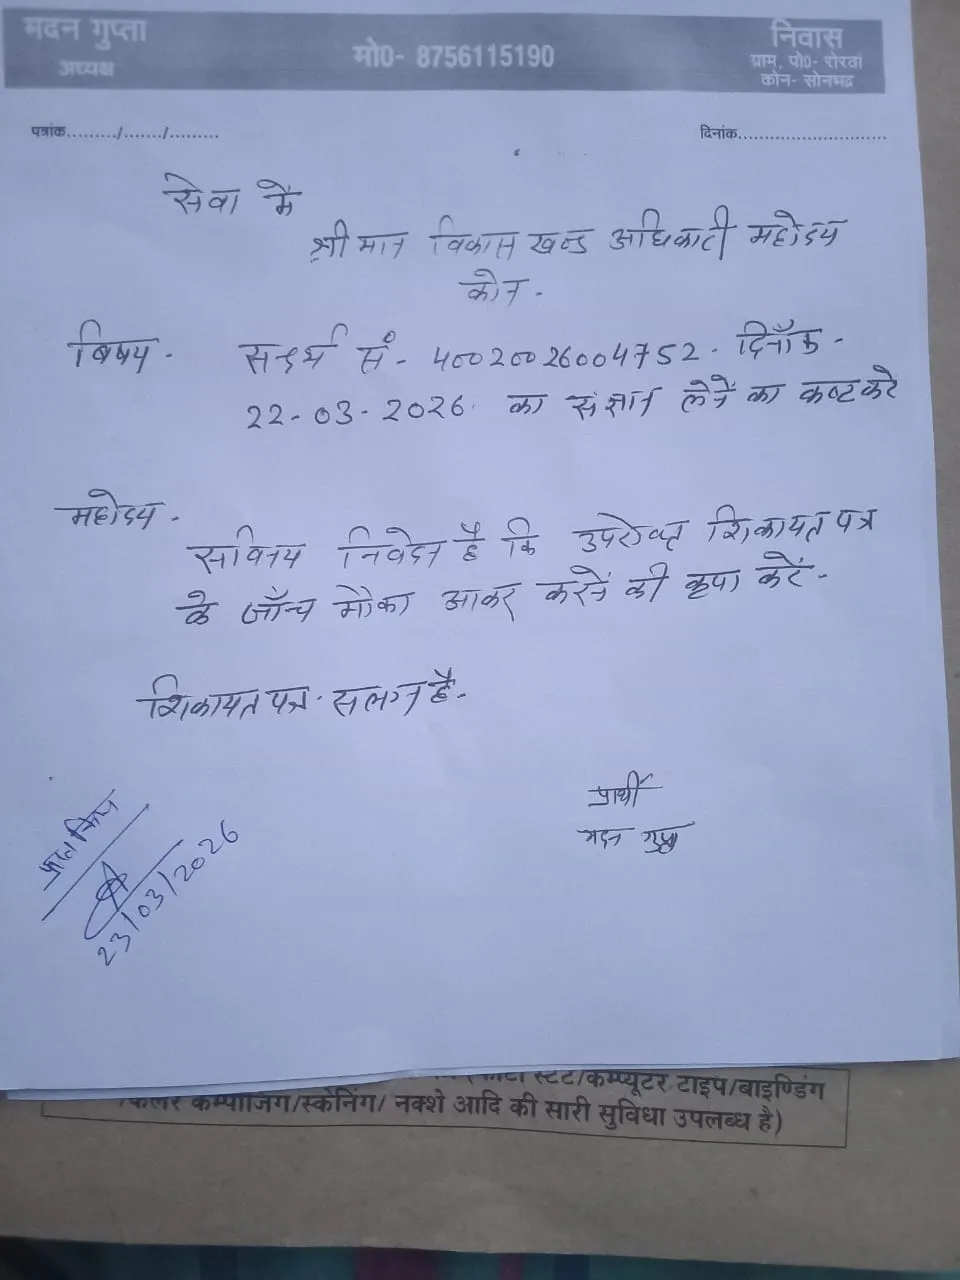 मदन गुप्ता
अध्यक्ष
मो0- 8756115190
निवास
ग्राम, पो0- रोरवां
कोन- सोनभद्र
पत्रांक........./......./.........
दिनांक............................
सेवा में
श्रीमान विकास खण्ड अधिकारी महोदय
कोन.
विषय. सन्दर्भ सं.- 40020026004752. दिनाँक-
22-03-2026. का संज्ञान लेनें का कष्ट करें
महोदय.
सविनय निवेदन है कि उपरोक्त शिकायत पत्र
के जाँच मौका आकर करनें की कृपा करें-
शिकायत पत्र. सलग्न है-
प्रार्थी
मदन गुप्ता
प्राप्त किया
23/03/2026
स्टेट/कम्प्यूटर टाइप/बाइण्डिंग
कलर कम्पोजिंग/स्केनिंग/ नक्शे आदि की सारी सुविधा उपलब्ध है)